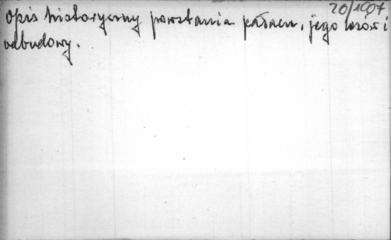 20/1907
Opis historyczny powstania pałacu, jego losów i
odbudowy.